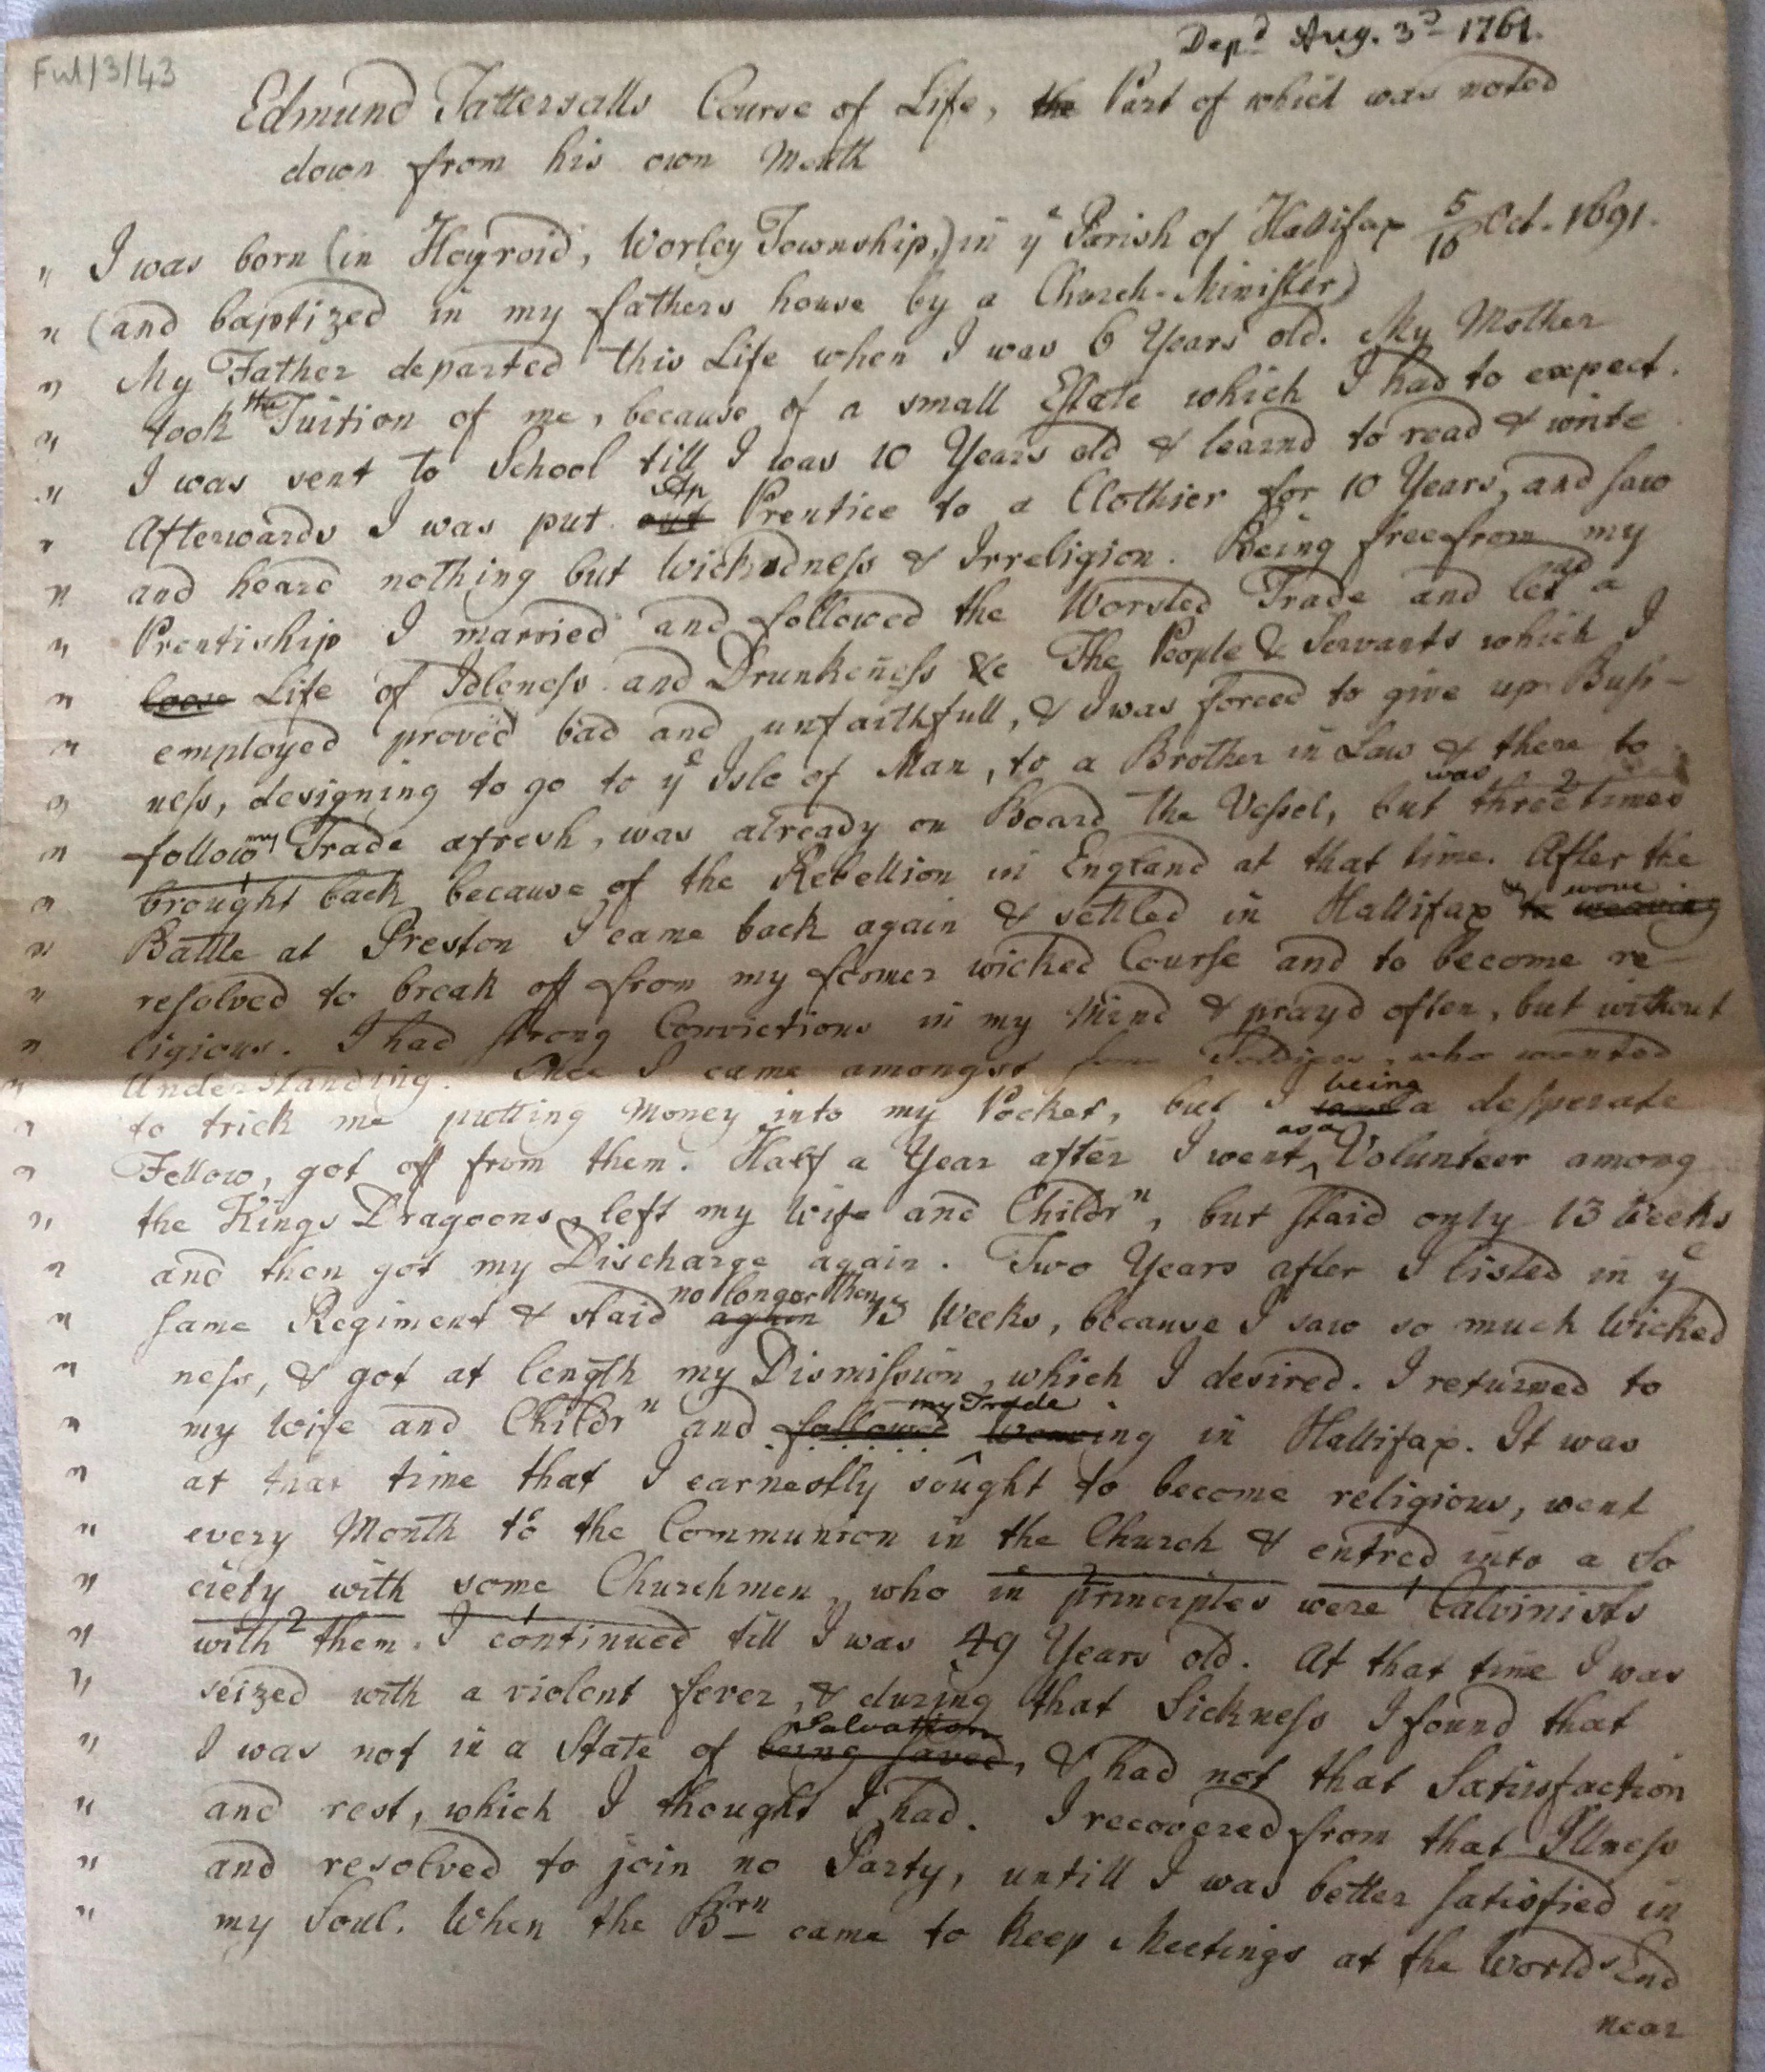 Depd Aug. 3d 1761.
Ful/3/43
Edmund Tattersalls Course of Life, the Part of which was noted
down from his own Mouth
" I was born (in Hoyroid, Worley Township,) in ye Parish of Hallifax 5/16 Oct. 1691.
" (and baptized in my fathers house by a Church-Minister)
" My Father departed this Life when I was 6 Years old. My Mother
" took the Tuition of me, because of a small Estate which I had to expect.
" I was sent to School till I was 10 Years old & learnd to read & write
" Afterwards I was put out Ap Prentice to a Clothier for 10 Years, and saw
" and heard nothing but Wickedness & Irreligion. Being free from my
" Prentiship I married and followed the Worsted Trade and led a
" loose Life of Idleness and Drunkeness &c The People & Servants which I
" employed proved bad and unfaithfull, & I was forced to give up Busi-
" ness, designing to go to ye Isle of Man, to a Brother in Law & there to
" follow my Trade afresh, was already on Board the Vessel, but was three times
" brought back because of the Rebellion in England at that time. After the
" Battle at Preston I came back again & settled in Hallifax to weaving & wove
" resolved to break off from my former wicked Course and to become re-
" ligious. I had strong Convictions in my Mind & prayd often, but without
" Understanding. Once I came amongst some Soldiers, who wanted
" to trick me putting Money into my Pocket, but I being a desperate
" Fellow, got off from them. Half a Year after I went as a Volunteer among
" the Kings Dragoons, left my Wife and Childrn, but staid only 13 Weeks
" and then got my Discharge again. Two Years after I listed in ye
" same Regiment & staid again no longer then 13 Weeks, because I saw so much Wicked
" ness, & got at length my Dismission, which I desired. I returned to
" my Wife and Childrn and followed weaving my Trade in Hallifax. It was
" at that time that I earnestly sought to become religious, went
" every Month to the Communion in the Church & entred into a So
" ciety with some Churchmen, who in principles were Calvinists
" with them. I continued till I was 49 Years old. At that time I was
" seized with a violent fever, & during that Sickness I found that
" I was not in a State of being saved, Salvation & had not that Satisfaction
" and rest, which I thought I had. I recovered from that Illness
" and resolved to join no Party, untill I was better satisfied in
" my Soul. When the Brn came to keep Meetings at the Worlds End
near